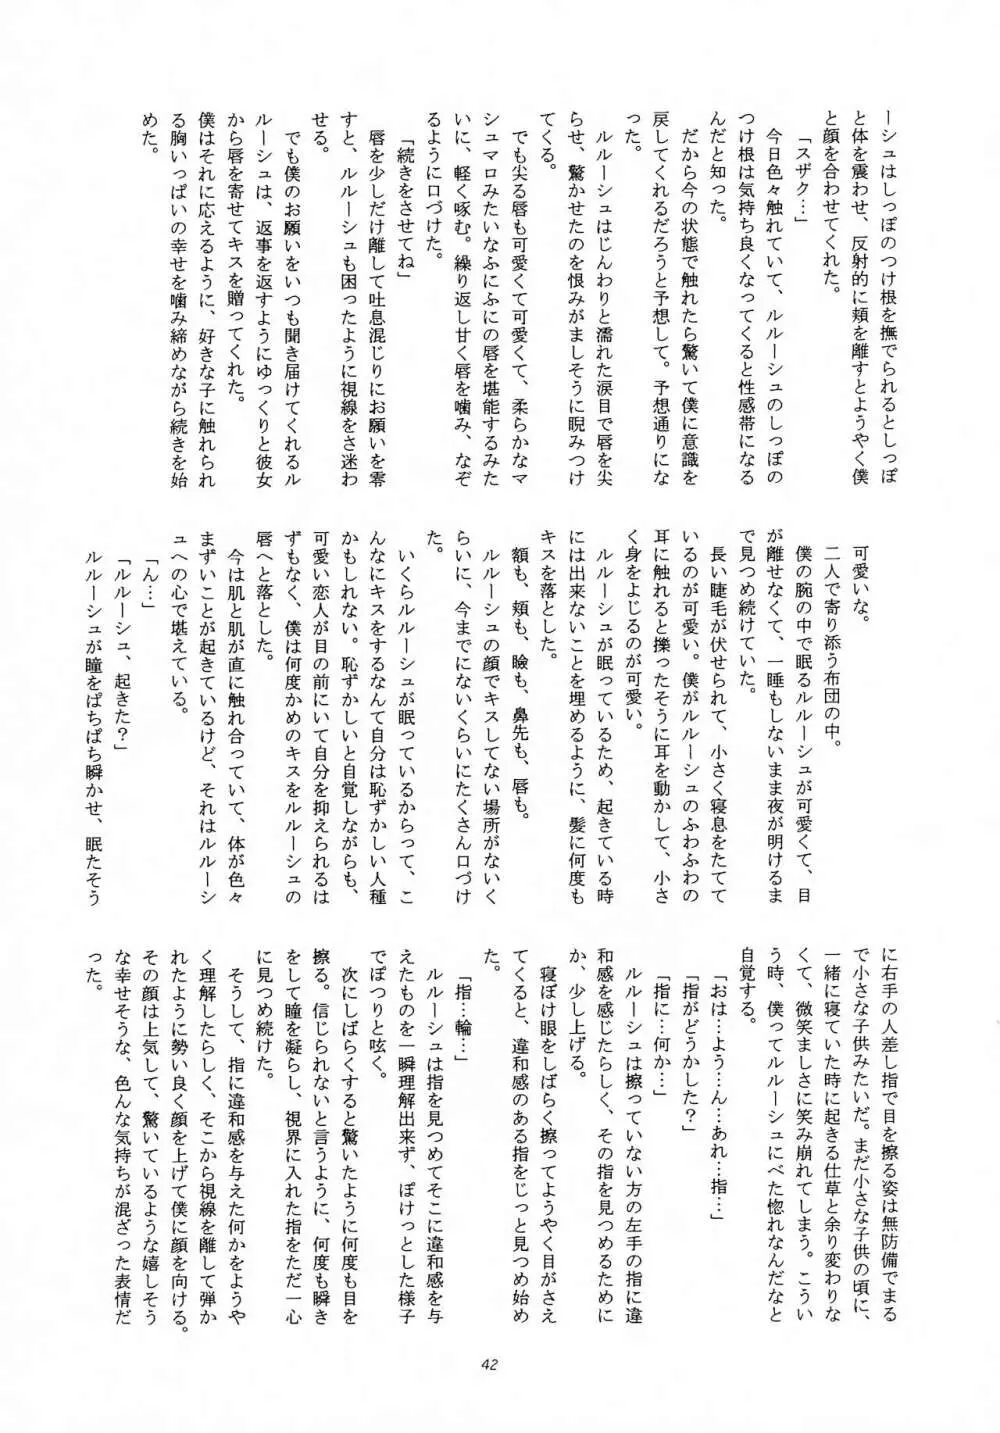 ーシュはしっぽのつけ根を撫でられるとしっぽ
と体を震わせ、反射的に頬を離すとようやく僕
と顔を合わせてくれた。
「スザク…」
今日色々触れていて、ルルーシュのしっぽの
つけ根は気持ち良くなってくると性感帯になる
んだと知った。
だから今の状態で触れたら驚いて僕に意識を
戻してくれるだろうと予想して。予想通りにな
った。
ルルーシュはじんわりと濡れた涙目で唇を尖
らせ、驚かせたのを恨みがましそうに睨みつけ
てくる。
でも尖る唇も可愛くて可愛くて、柔らかなマ
シュマロみたいなふにふにの唇を堪能するみた
いに、軽く啄む。繰り返し甘く唇を噛み、なぞ
るように口づけた。
「続きをさせてね」
唇を少しだけ離して吐息混じりにお願いを零
すと、ルルーシュも困ったように視線をさ迷わ
せる。
でも僕のお願いをいつも聞き届けてくれるル
ルーシュは、返事を返すようにゆっくりと彼女
から唇を寄せてキスを贈ってくれた。
僕はそれに応えるように、好きな子に触れられ
る胸いっぱいの幸せを噛み締めながら続きを始
めた。
可愛いな。
二人で寄り添う布団の中。
僕の腕の中で眠るルルーシュが可愛くて、目
が離せなくて、一睡もしないまま夜が明けるま
で見つめ続けていた。
長い睫毛が伏せられて、小さく寝息をたてて
いるのが可愛い。僕がルルーシュのふわふわの
耳に触れると擽ったそうに耳を動かして、小さ
く身をよじるのが可愛い。
ルルーシュが眠っているため、起きている時
には出来ないことを埋めるように、髪に何度も
キスを落とした。
額も、頬も、瞼も、鼻先も、唇も。
ルルーシュの顔でキスしてない場所がないく
らいに、今までにないくらいにたくさん口づけ
た。
いくらルルーシュが眠っているからって、こ
んなにキスをするなんて自分は恥ずかしい人種
かもしれない。恥ずかしいと自覚しながらも、
可愛い恋人が目の前にいて自分を抑えられるは
ずもなく、僕は何度かめのキスをルルーシュの
唇へと落とした。
今は肌と肌が直に触れ合っていて、体が色々
まずいことが起きているけど、それはルルーシ
ュへの心で堪えている。
「ん…」
「ルルーシュ、起きた？」
ルルーシュが瞳をぱちぱち瞬かせ、眠たそう
に右手の人差し指で目を擦る姿は無防備でまる
で小さな子供みたいだ。まだ小さな子供の頃に、
一緒に寝ていた時に起きる仕草と余り変わりな
くて、微笑ましさに笑み崩れてしまう。こうい
う時、僕ってルルーシュにべた惚れなんだなと
自覚する。
「おは…よう…ん…あれ…指…」
「指がどうかした？」
「指に…何か…」
ルルーシュは擦っていない方の左手の指に違
和感を感じたらしく、その指を見つめるために
か、少し上げる。
寝ぼけ眼をしばらく擦ってようやく目がさえ
てくると、違和感のある指をじっと見つめ始め
た。
「指…輪…」
ルルーシュは指を見つめてそこに違和感を与
えたものを一瞬理解出来ず、ぽけっとした様子
でぽつりと呟く。
次にしばらくすると驚いたように何度も目を
擦る。信じられないと言うように、何度も瞬き
をして瞳を凝らし、視界に入れた指をただ一心
に見つめ続けた。
そうして、指に違和感を与えた何かをようや
く理解したらしく、そこから視線を離して弾か
れたように勢い良く顔を上げて僕に顔を向ける。
その顔は上気して、驚いているような嬉しそう
な幸せそうな、色んな気持ちが混ざった表情だ
った。
42